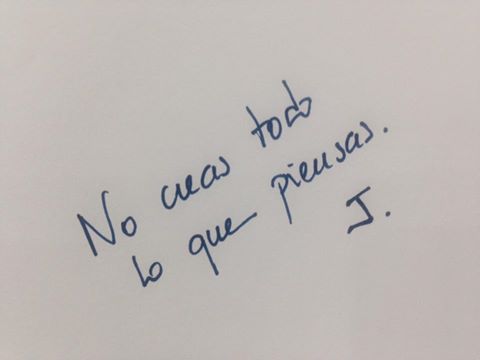 No creas todo
lo que piensas.
J.